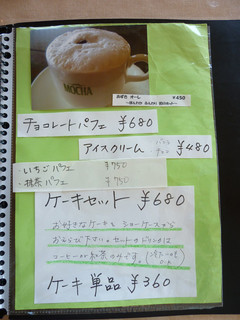 MOCHA
¥450
チョコレートパフェ ¥680
アイスクリーム ¥480
・いちごパフェ ¥750
・抹茶パフェ ¥750
ケーキセット ¥680
お好きなケーキをショーケースから
おえらび下さい。セットのドリンクは
コーヒーか紅茶のみです。
ケーキ単品 ¥360